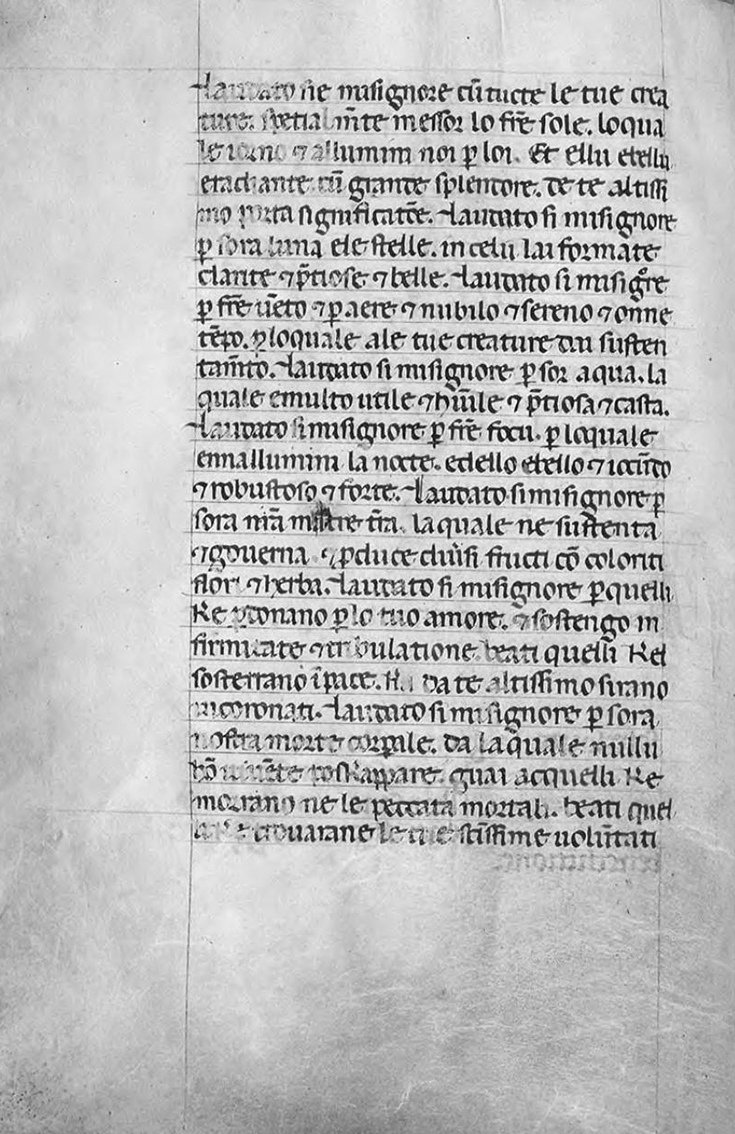 Laudato sie misignore cū tucte le tue crea
ture. spetialm̄te messor lo fr̄e sole. loqua
le iorno ⁊ allumini noi p̲ loi. Et ellu ebellu
eradiante cū grande splendore. de te altissi
mo porta significatōe. Laudato si misignore
p̲ sora luna ele stelle. in celu lai formate
clarite ⁊ p̄tiose ⁊ belle. Laudato si misig̅re
p̲ fr̄e uēto ⁊ p̲ aere ⁊ nubilo ⁊ sereno ⁊ onne
tēpo. p̲ loquale ale tue creature dai susten
tam̄to. Laudato si misignore p̲ sor aqua. la
quale emulto utile ⁊ hūile ⁊ p̄tiosa ⁊ casta.
Laudato si misignore p̲ fr̄e focu. p̲ loquale
ennallumini la nocte. edello ebello ⁊ iocūdo
⁊ robustoso ⁊ forte. Laudato si misignore p̲
sora nr̄a matre tr̄a. laquale ne sustenta
⁊ gouerna ⁊ p̲duce diuersi fructi cō coloriti
flori ⁊ herba. Laudato si misignore p̲ quelli
Ke p̲donano p̲ lo tuo amore. ⁊ sostengo in
firmitate ⁊ tribulatione. beati quelli Kel
sosterrano ī pace. Ka da te altissimo sirano
incoronati. Laudato si misignore p̲ sora
nostra morte corp̲ale. da laquale nullu
hō uiuēte poskappare. guai acquelli Ke
morrano ne le peccata mortali. beati quel
li Ke trouarane le tue s̄c̄issime uolūtati